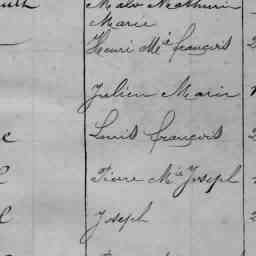 Malo Mathurin
Marie
Henri Mie françois 2
Julien Marie
e Louis françois 2
Pierre Mie Joseph
Joseph 2